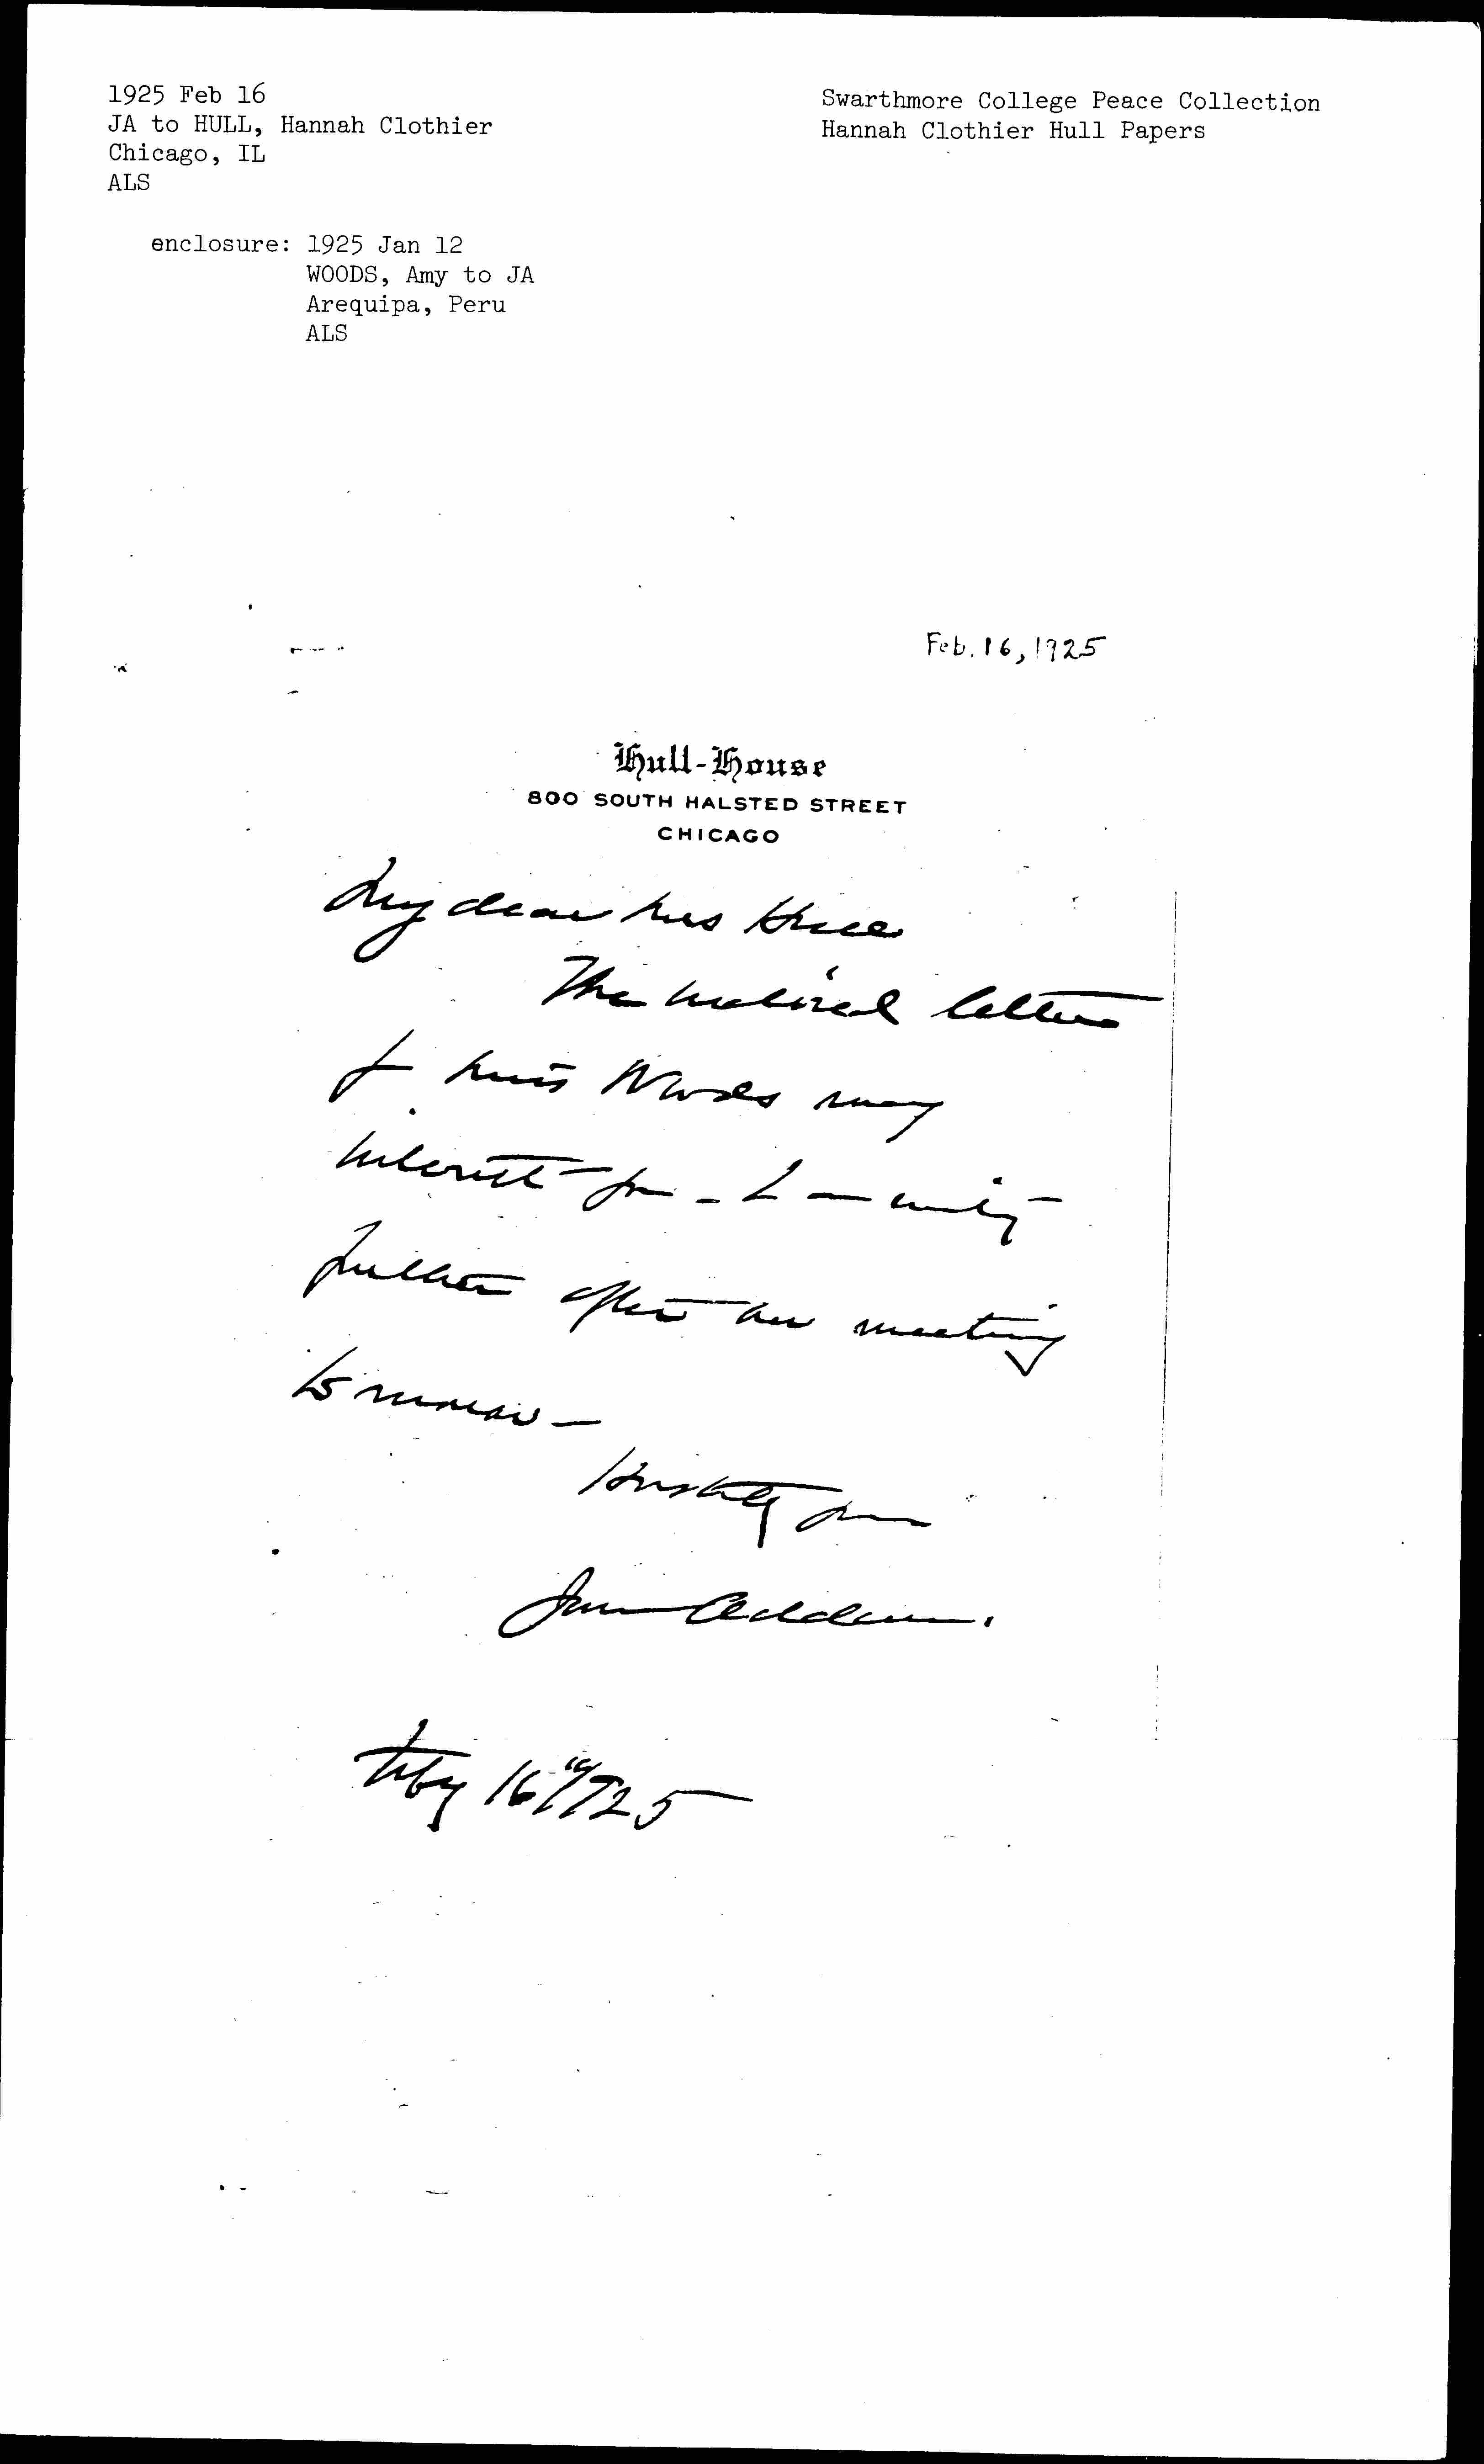 1925 Feb 16
JA to HULL, Hannah Clothier
Chicago, IL
ALS
Swarthmore College Peace Collection
Hannah Clothier Hull Papers
enclosure: 1925 Jan 12
WOODS, Amy to JA
Arequipa, Peru
ALS
Feb. 16, 1925
Hull-House
800 SOUTH HALSTED STREET
CHICAGO
My dear Mrs Hull
The enclosed letter
of Miss Woods may
interest you - I
further after our meeting
to morrow -
Hastily yours
Jane Addams.
Feby 16" 1925